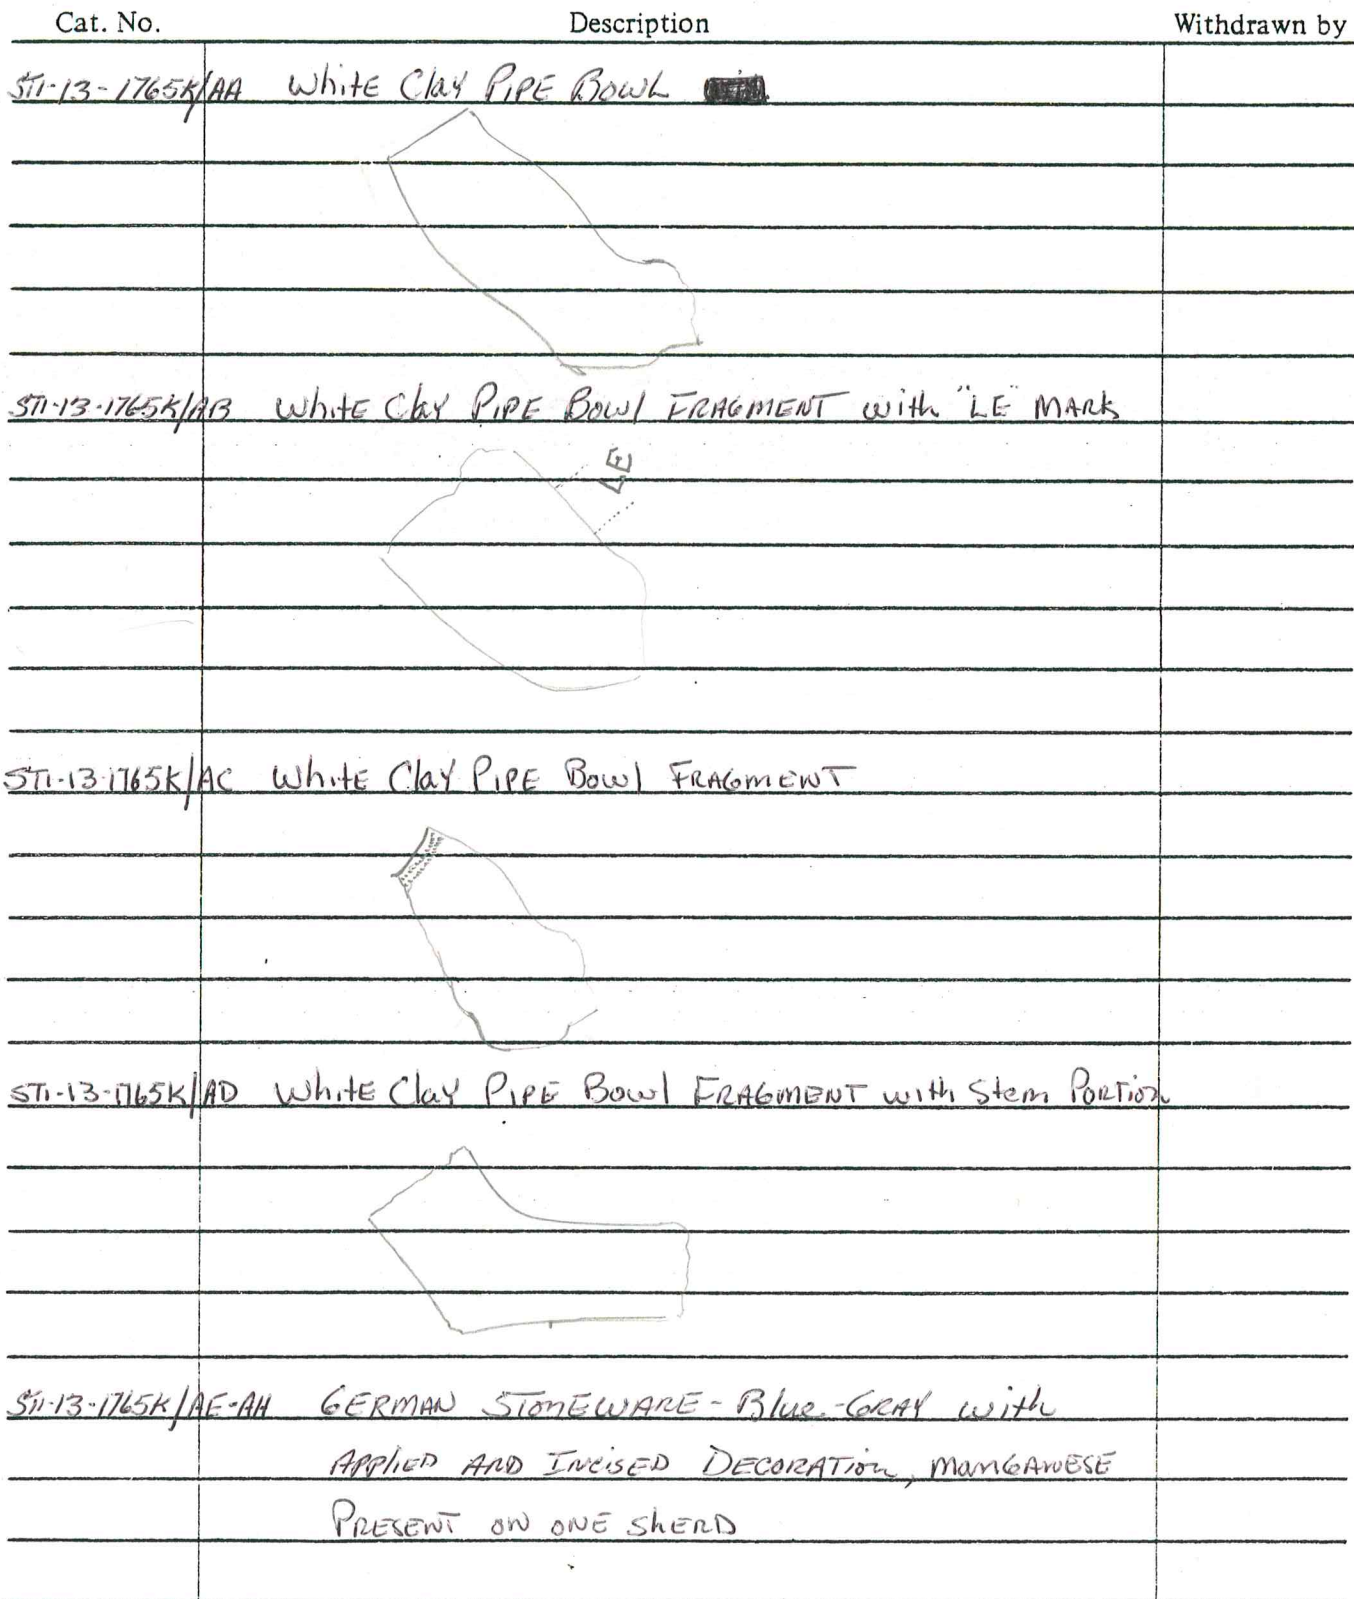 Cat. No. Description Withdrawn by
ST1-13-1765K/AA White Clay PIPE BOWL
ST1-13-1765K/AB White Clay PIPE BOWl FRAGMENT with "LE" MARK
LE
ST1-13-1765K/AC White Clay PIPE BOWl FRAGMENT
ST1-13-1765K/AD White Clay PIPE BOWl FRAGMENT with Stem PORTION
ST1-13-1765K/AE-AH GERMAN STONEWARE - Blue-GRAY with
APPlIED AND INCISED DECORATION, MANGANESE
PRESENT ON ONE SHERD